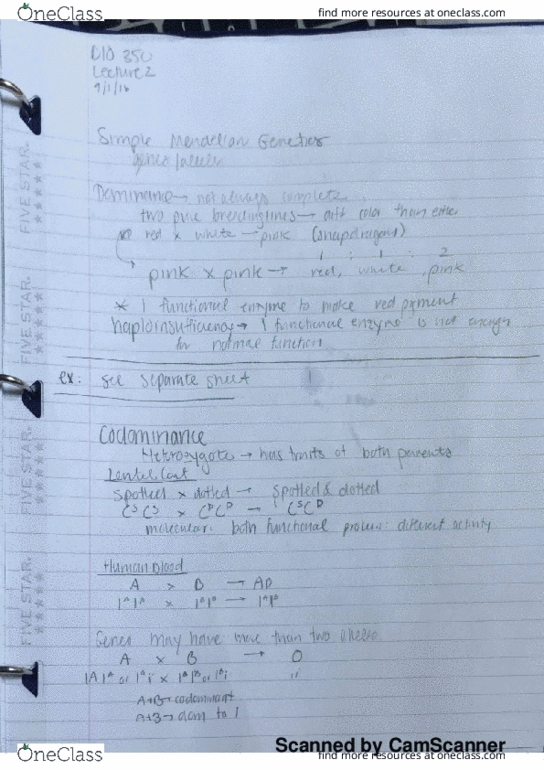 OneClass find more resources at oneclass.com
BIO 350
Lecture 2
9/1/16
Simple Mendelian Genetics
Dominance → not always complete
two pure breeding lines → diff color than either
red x white → pink (snapdragons)
1 : 1 : 2
pink x pink → red, white, pink
* 1 functional enzyme to make red pigment
haploinsufficiency → 1 functional enzyme is not enough
for normal function
ex: see separate sheet
Codominance
Heterozygote → has traits of both parents
Lentil Coat
Spotted x dotted → Spotted & dotted
CˢCˢ x CᴰCᴰ → CˢCᴰ
molecular: both functional different activity
Human Blood
A x B → AB
IᴬIᴬ x IᴮIᴮ → IᴬIᴮ
Genes may have more than two alleles
A x B → O
IᴬIᴬ or Iᴬi x or Iᴮi ii
A+B → codominant
A+B → dom to i
FIVE STAR.
FIVE STAR.
FIVE STAR.
FIVE STAR.
Scanned by CamScanner
OneClass find more resources at oneclass.com